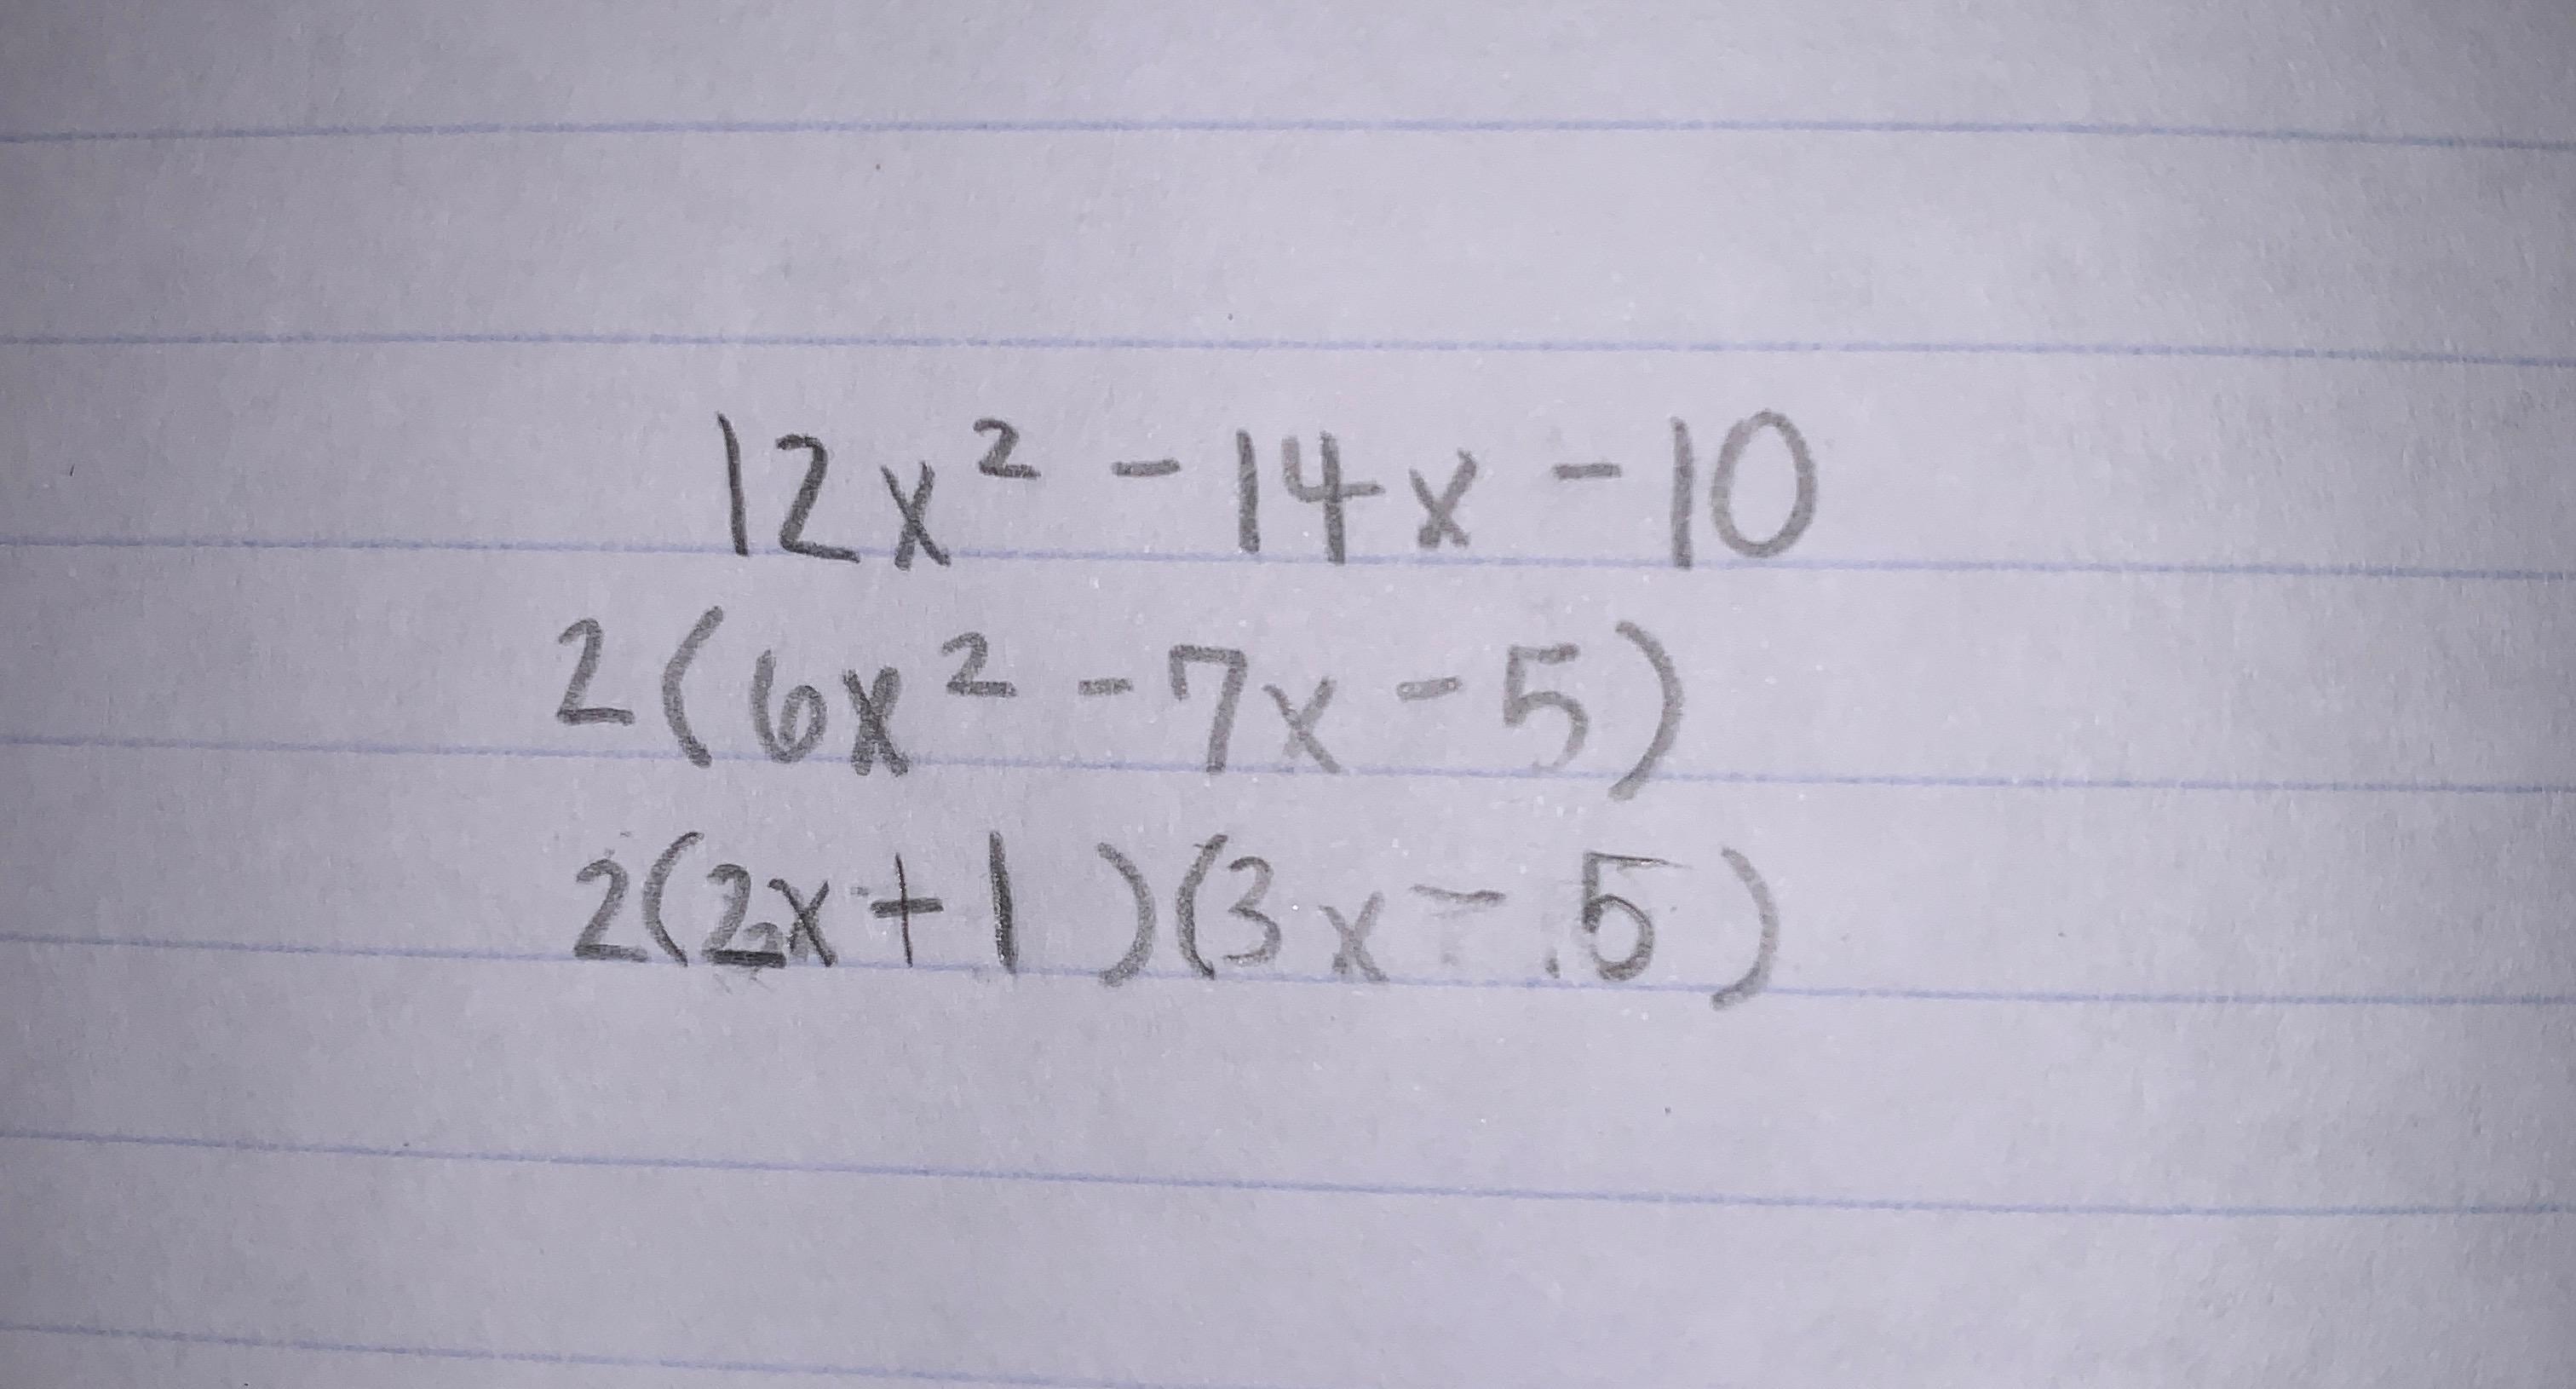 12x² - 14x - 10
2(6x² - 7x - 5)
2(2x + 1)(3x - 5)